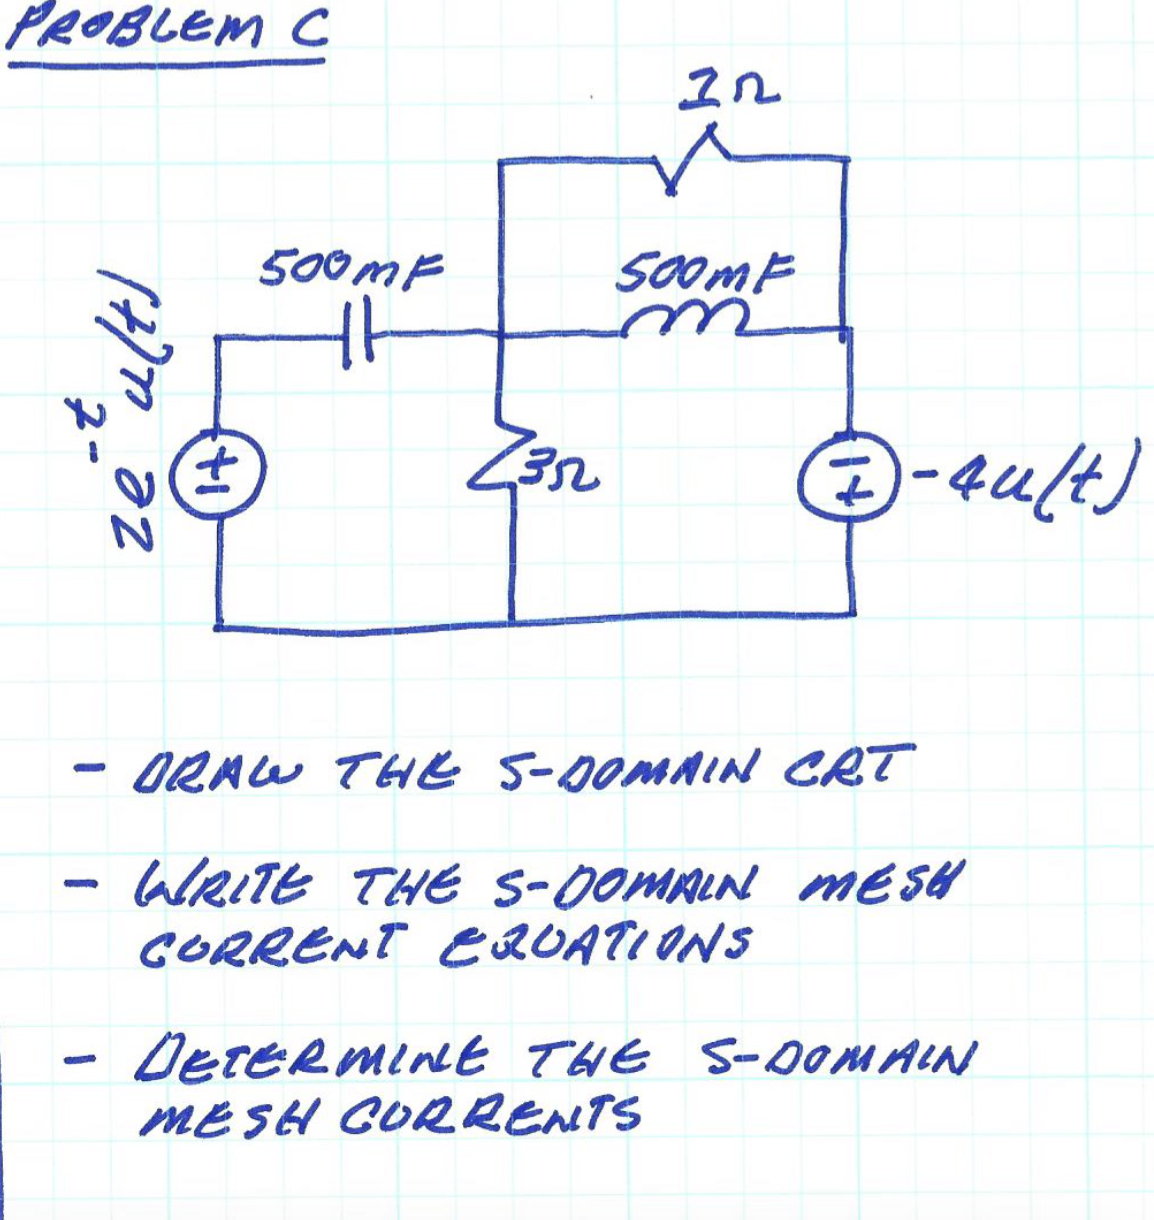 PROBLEM C
1Ω
500mF
500mF
2e^-t u(t)
+
-
3Ω
-
+
-4u(t)
- DRAW THE S-DOMAIN CRT
- WRITE THE S-DOMAIN MESH
CURRENT EQUATIONS
- DETERMINE THE S-DOMAIN
MESH CURRENTS